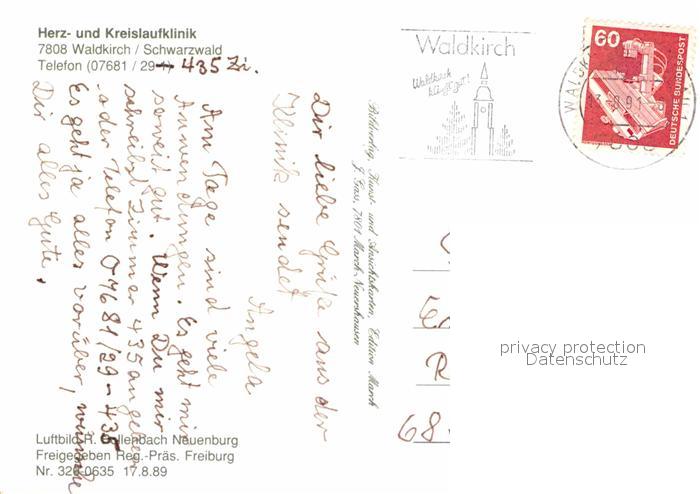 Herz- und Kreislaufklinik
7808 Waldkirch / Schwarzwald
Telefon (07681 / 29-1) 435 Zi.
Dir liebe Grüße aus der
Klinik sendet
Angela
Am Tage sind viele
Anwendungen. Es geht mir
soweit gut. Wenn Du mir
schreibst Zimmer 435 angeben
oder Telefon 07681/29-435
Es geht ja alles vorüber, wünsche
Dir alles Gute.
Luftbild R. Gollenbach Neuenburg
Freigegeben Reg.-Präs. Freiburg
Nr. 320-0635 17.8.89
Bildverlag, Kunst- und Ansichtskarten, Edition March
J. Gass, 7801 March-Neuershausen
Waldkirch
60
DEUTSCHE BUNDESPOST
R
68
privacy protection
Datenschutz